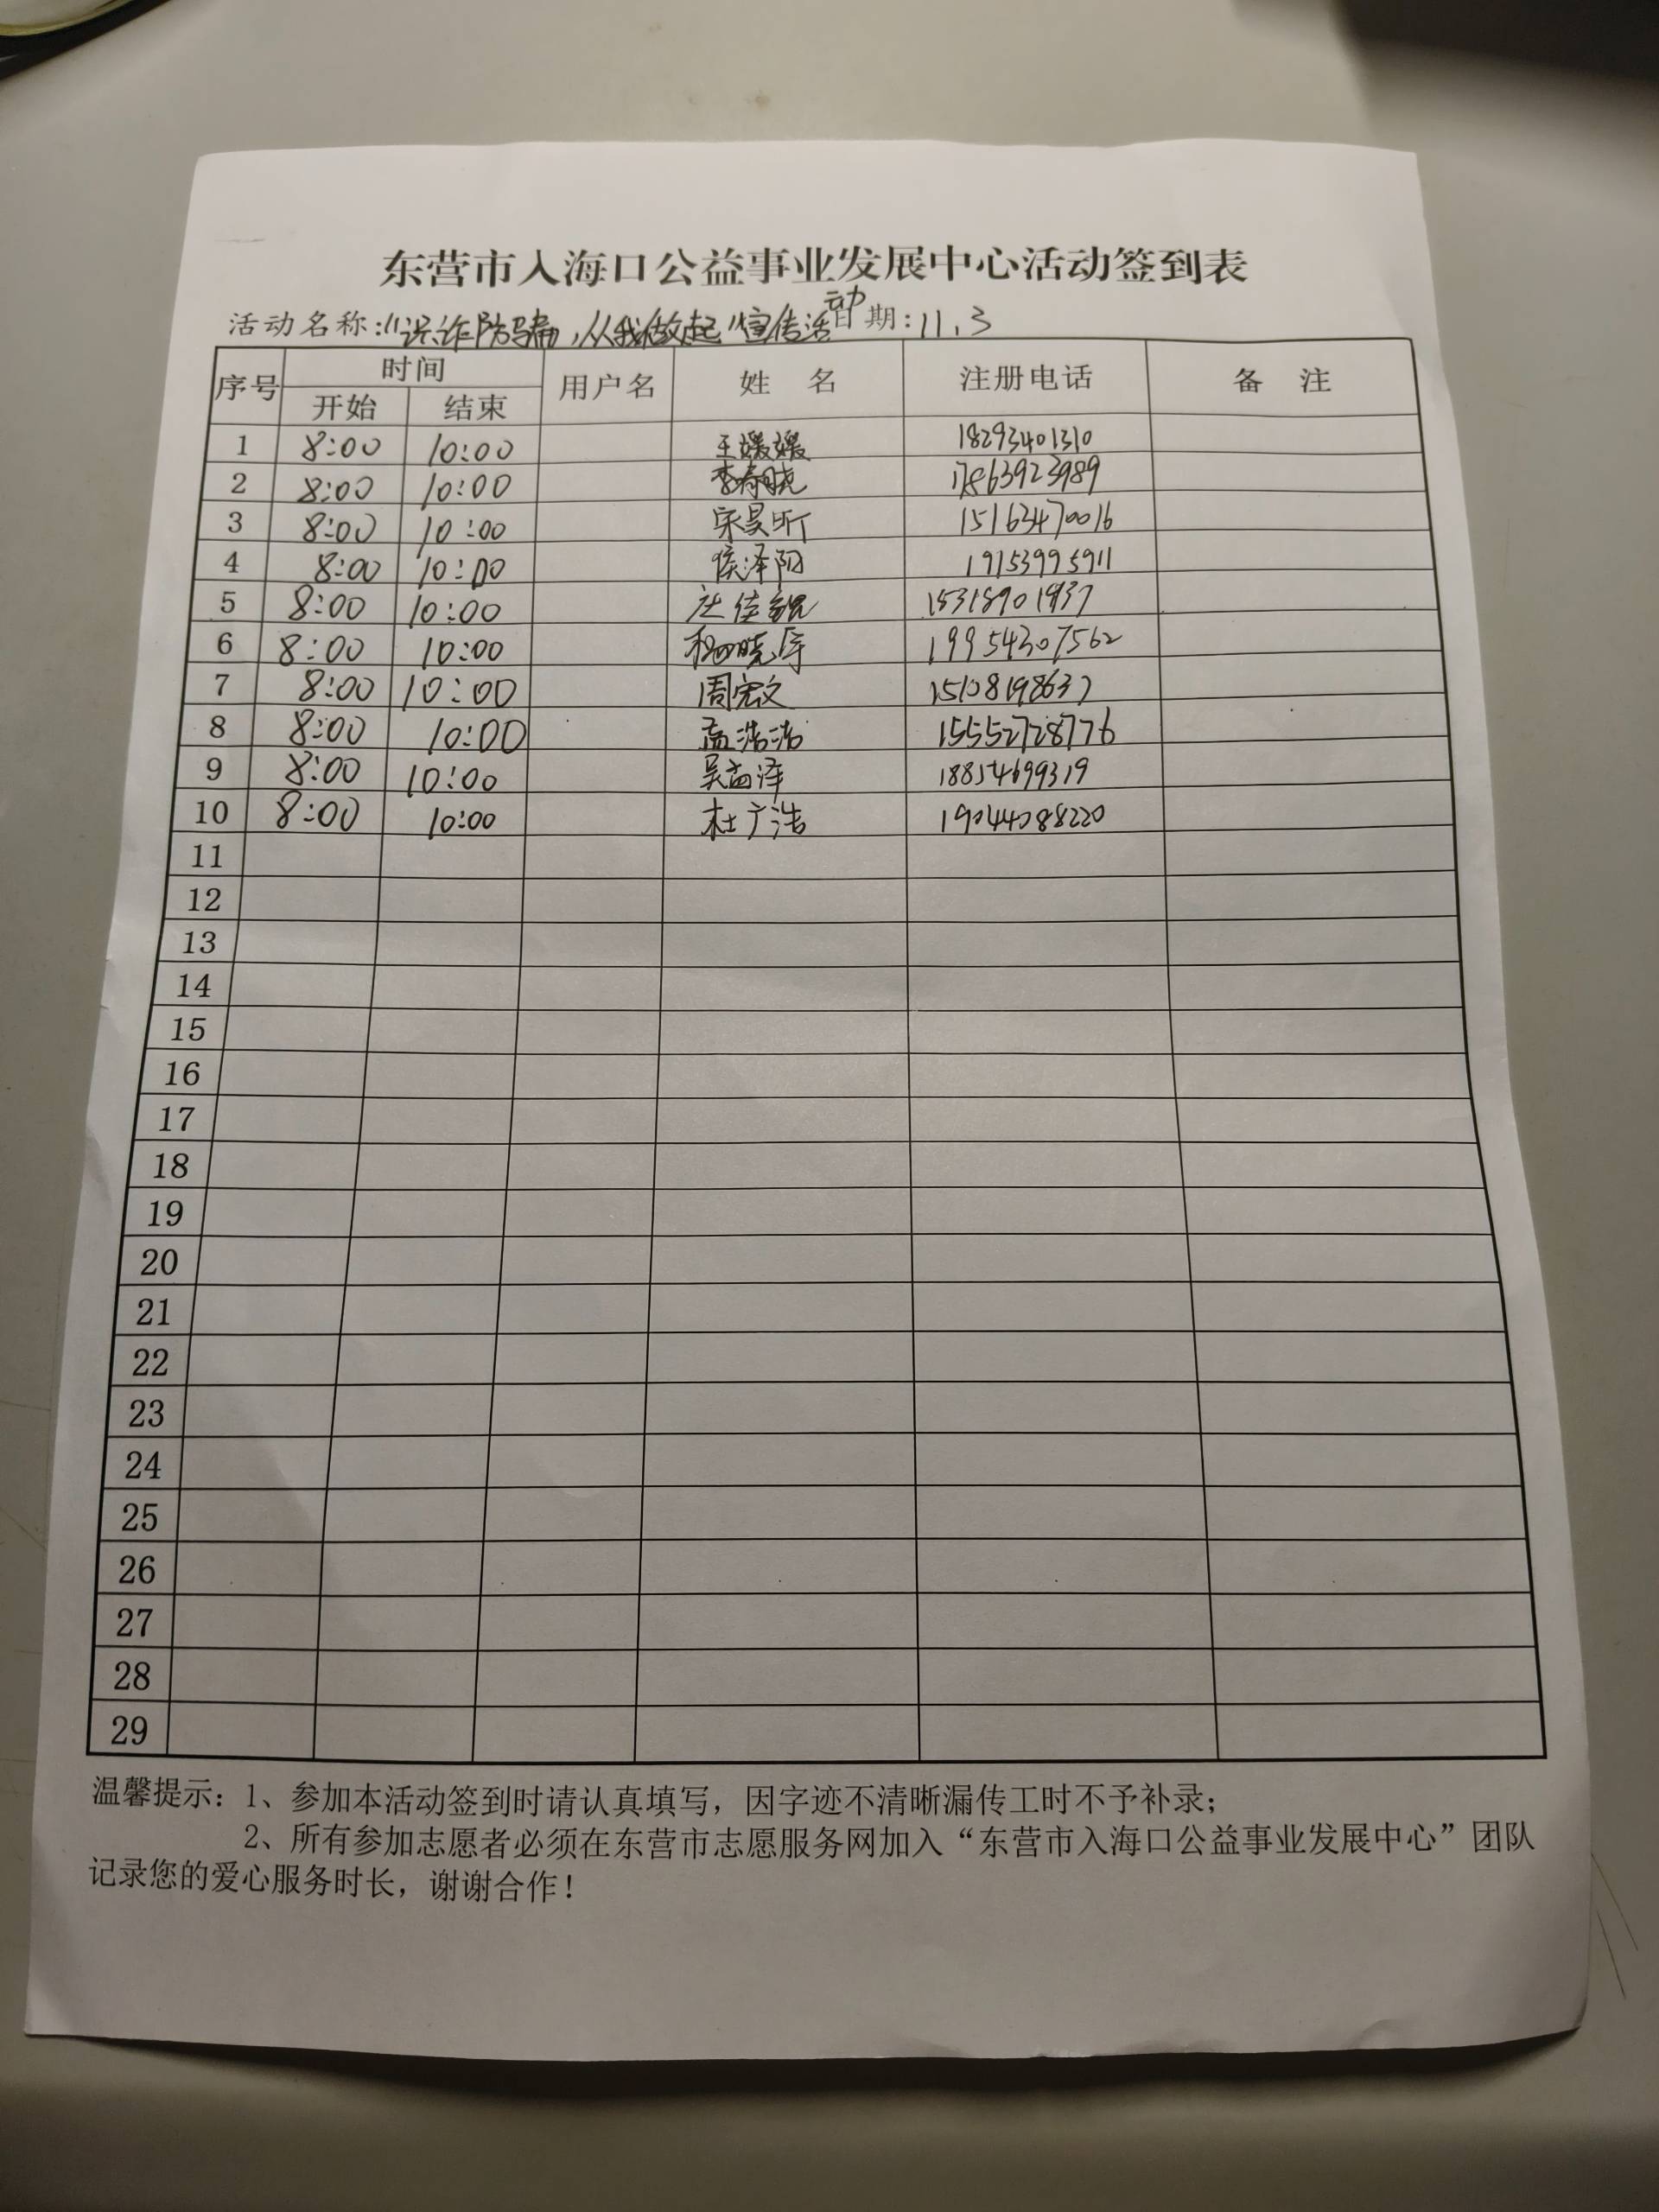 东营市入海口公益事业发展中心活动签到表
活动名称:“识诈防骗,从我做起”宣传活动 日期:11.3
序号 时间 用户名 姓 名 注册电话 备 注
开始 结束
1 8:00 10:00 王媛媛 18293401310
2 8:00 10:00 李春晓 17863923989
3 8:00 10:00 宋昊昕 15163470016
4 8:00 10:00 侯泽阳 19153995911
5 8:00 10:00
6 8:00 10:00 19954307562
7 8:00 10:00 周宏文 15108198637
8 8:00 10:00 孟浩浩 15552728776
9 8:00 10:00 吴益泽 18854699319
10 8:00 10:00 杜广浩 19044088220
11
12
13
14
15
16
17
18
19
20
21
22
23
24
25
26
27
28
29
温馨提示：1、参加本活动签到时请认真填写，因字迹不清晰漏传工时不予补录；
2、所有参加志愿者必须在东营市志愿服务网加入“东营市入海口公益事业发展中心”团队
记录您的爱心服务时长，谢谢合作！